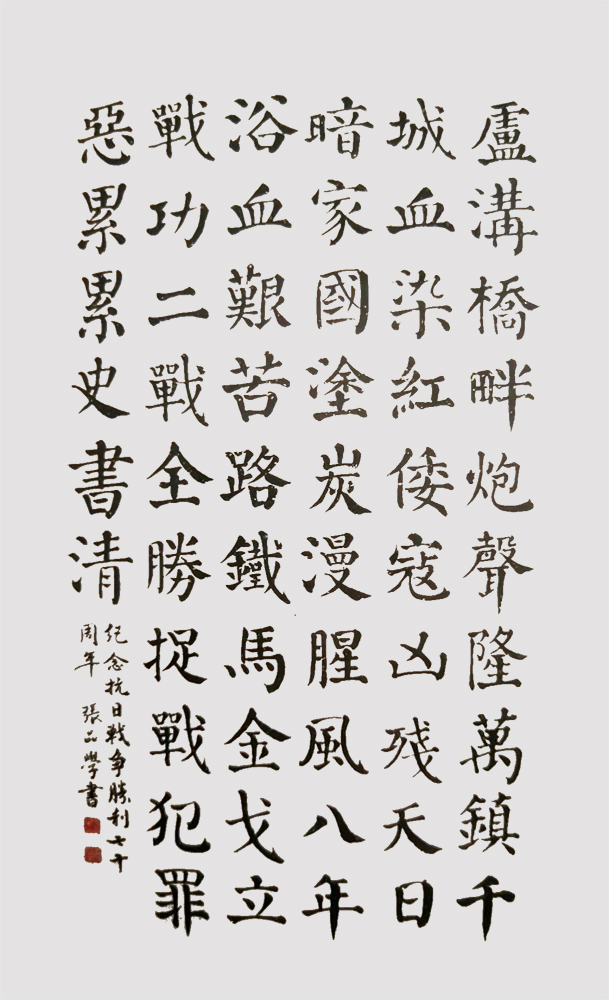 盧溝橋畔炮聲隆萬鎮千
城血染紅倭寇凶殘天日
暗家國塗炭漫腥風八年
浴血艱苦路鐵馬金戈立
戰功二戰全勝捉戰犯罪
惡累累史書清
纪念抗日戰争勝利七十
周年 張品學書